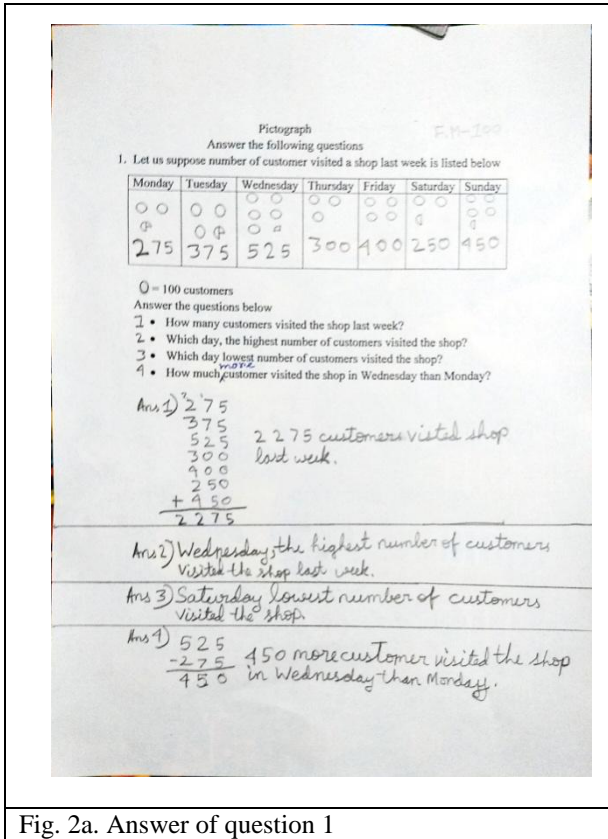 Pictograph
F.M-100
Answer the following questions
1. Let us suppose number of customer visited a shop last week is listed below
Monday Tuesday Wednesday Thursday Friday Saturday Sunday
275 375 525 300 400 250 450
O = 100 customers
Answer the questions below
1 • How many customers visited the shop last week?
2 • Which day, the highest number of customers visited the shop?
3 • Which day lowest number of customers visited the shop?
more
4 • How much customer visited the shop in Wednesday than Monday?
Ans 1) 275
375
525 2275 customers visted shop
300 last week.
400
250
+ 450
2275
Ans 2) Wednesday, the highest number of customers
visited the shop last week.
Ans 3) Saturday lowest number of customers
visited the shop.
Ans 4) 525
-275 450 more customer visited the shop
450 in Wednesday than Monday.
Fig. 2a. Answer of question 1